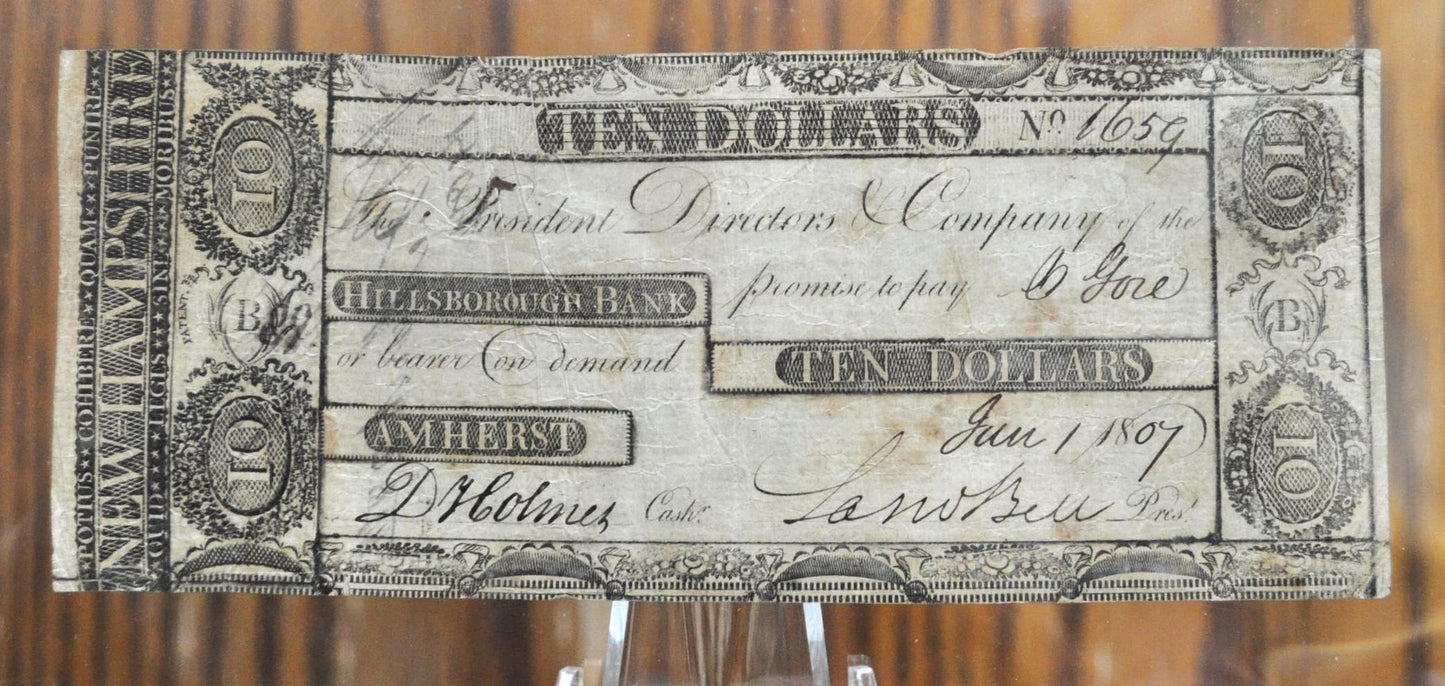 POTIUS COHIBERE QUAM PUNIRE
NEW-HAMPSHIRE
QUID LEGES SINE MORIBUS
PATENT
10
B
10
TEN DOLLARS
Nº 1659
The President Directors & Company of the
HILLSBOROUGH BANK promise to pay C Gore
or bearer on demand TEN DOLLARS
AMHERST Jan 1 1807
D Holmes Cashr. Saml Bell Prest.
10
B
10